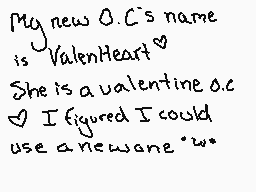 My new O.C's name
is ValenHeart♡
She is a valentine o.c
♡ I figured I could
use a new one •w•